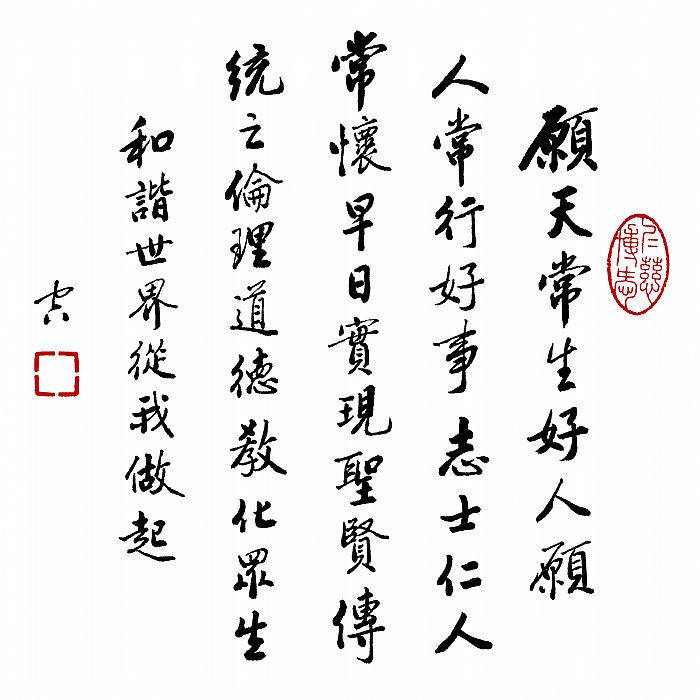 願天常生好人願
人常行好事志士仁人
常懷早日實現聖賢傳
統之倫理道德教化眾生
和諧世界從我做起